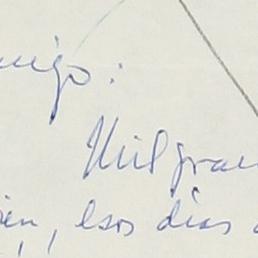 migo:
Mil grac
ien, esos días